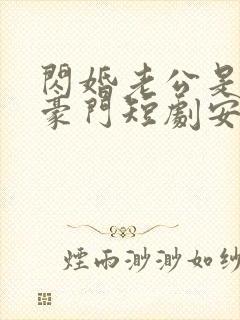 閃婚老公是
豪門短劇安
煙雨渺渺如紗